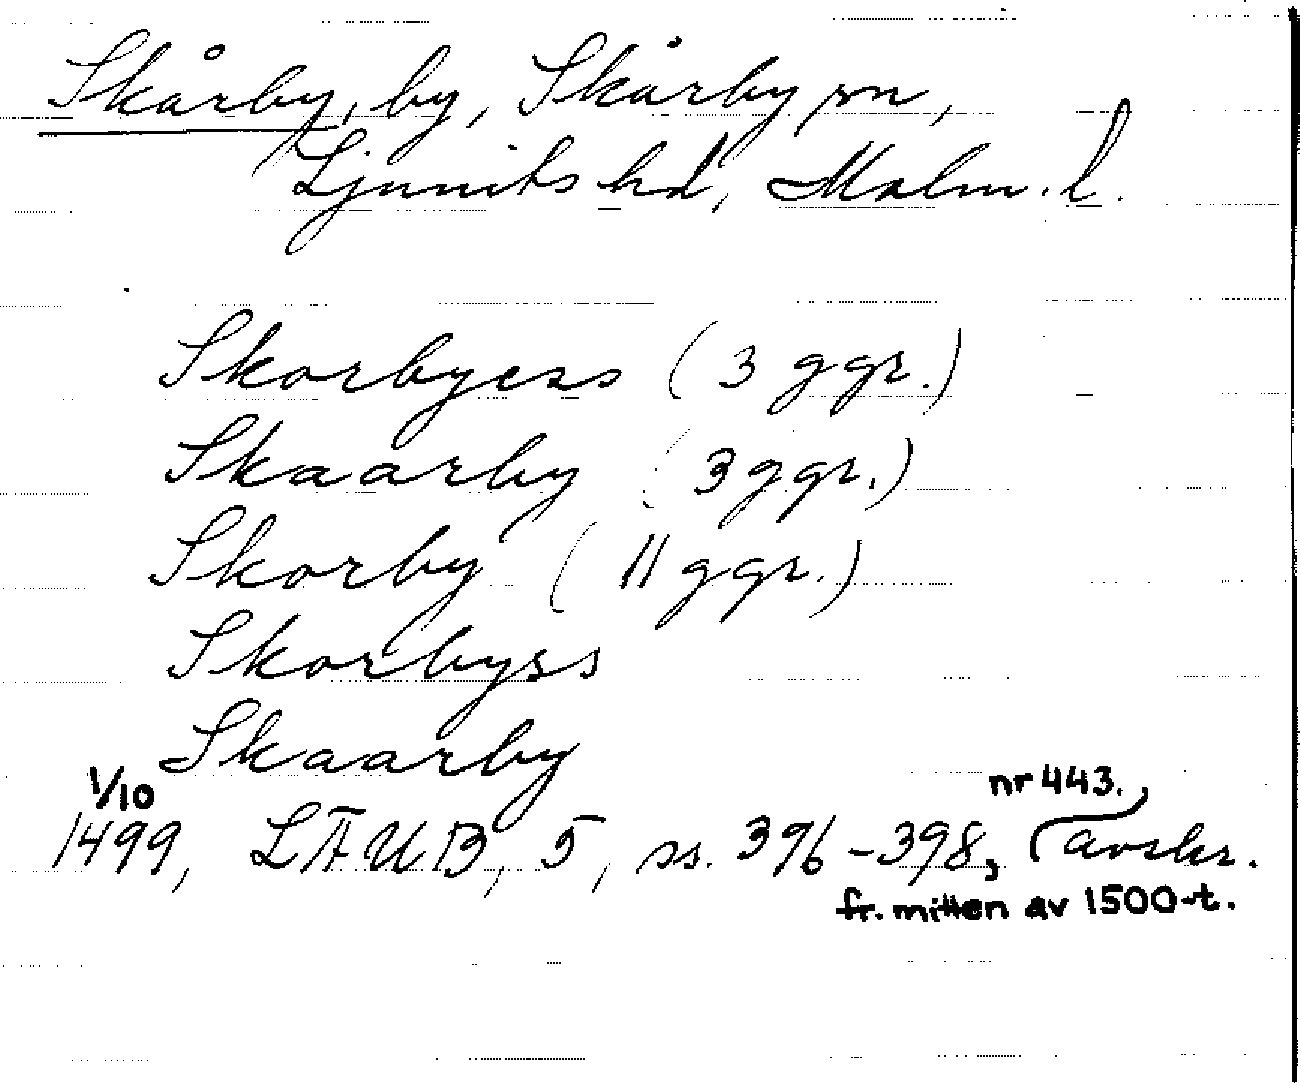 Skårby, by, Skårby sn,
Ljunits hd, Malm. l.
Skorbyess (3 ggr.)
Skaarby (3 ggr.)
Skorby (11 ggr.)
Skorbyss
Skaarby
1/10 nr 443.
1499, LÄUB, 5, ss. 396-398, avskr.
fr. mitten av 1500-t.